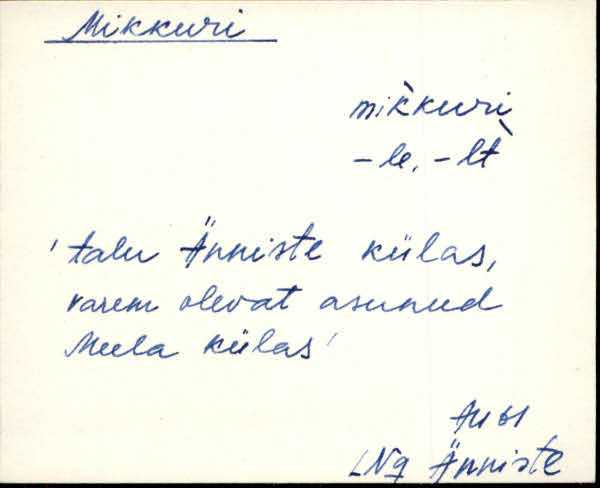 Mikkuri
mik̀kuri
-le, -lt̀
'talu Änniste külas,
varem olevat asunud
Meela külas'
LNg Änniste